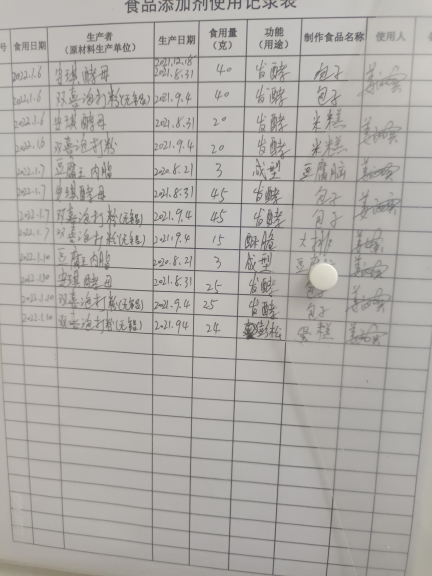 食品添加剂使用记录表
号 食用日期 生产者 (原材料生产单位) 生产日期 食用量 (克) 功能 (用途) 制作食品名称 使用人
2022.1.6 安琪酵母 2021.12.18 2021.8.31 40 发酵 包子
1.6 双喜泡打粉(无铝) 2021.9.4 40 发酵 包子
2022.1.6 安琪酵母 2021.8.31 20 发酵 米糕
2022.1.6 双喜泡打粉 2021.9.4 20 发酵 米糕
2022.1.7 豆腐王内脂 2020.8.21 3 成型 豆腐脑
1.7 安琪酵母 2021.8.31 45 发酵 包子
2022.1.7 双喜泡打粉(无铝) 2021.9.4 45 发酵 包子
2022.1.7 双喜泡打粉(无铝) 2021.9.4 15 酥脆
2022.1.10 豆腐王内脂 2020.8.21 3 成型 豆
2022.1.10 安琪酵母 2021.8.31 25 发酵 包子
2022.1.10 双喜泡打粉(无铝) 2021.9.4 25 发酵 包子
2022.1.10 双喜泡打粉(无铝) 2021.9.4 24 膨松 蛋糕